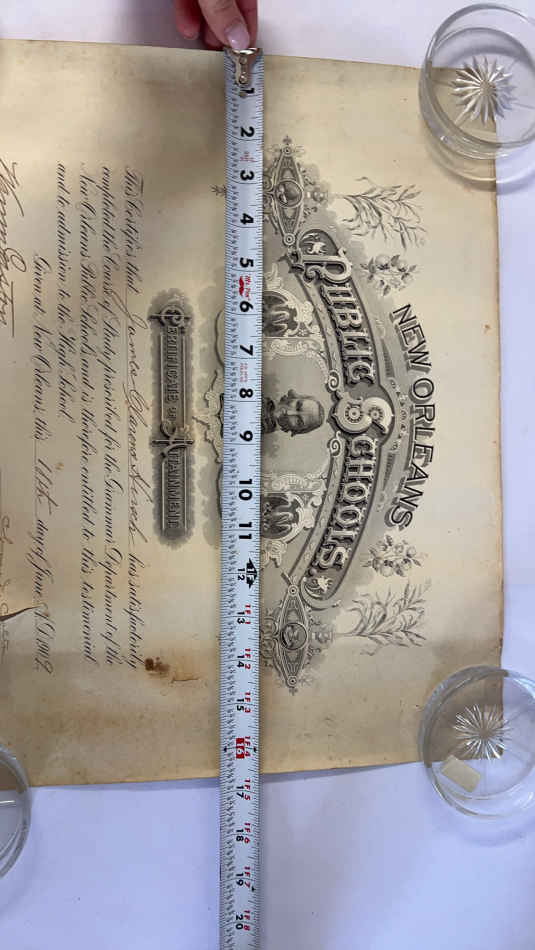 NEW ORLEANS
PUBLIC SCHOOLS.
CERTIFICATE OF ATTAINMENT
This Certifies that James Clarence
has satisfactorily
completed the Course of Study prescribed for the Grammar Department of the
New Orleans Public Schools and is therefore entitled to this testimonial
and to admission to the High School.
Given at New Orleans, this 11th day of June A.D. 1902.
1
2
3
4
5
6
7
8
9
10
11
1F
12
1F1
13
1F2
14
1F3
15
1F4
16
1F5
17
1F6
18
1F7
19
1F8
20